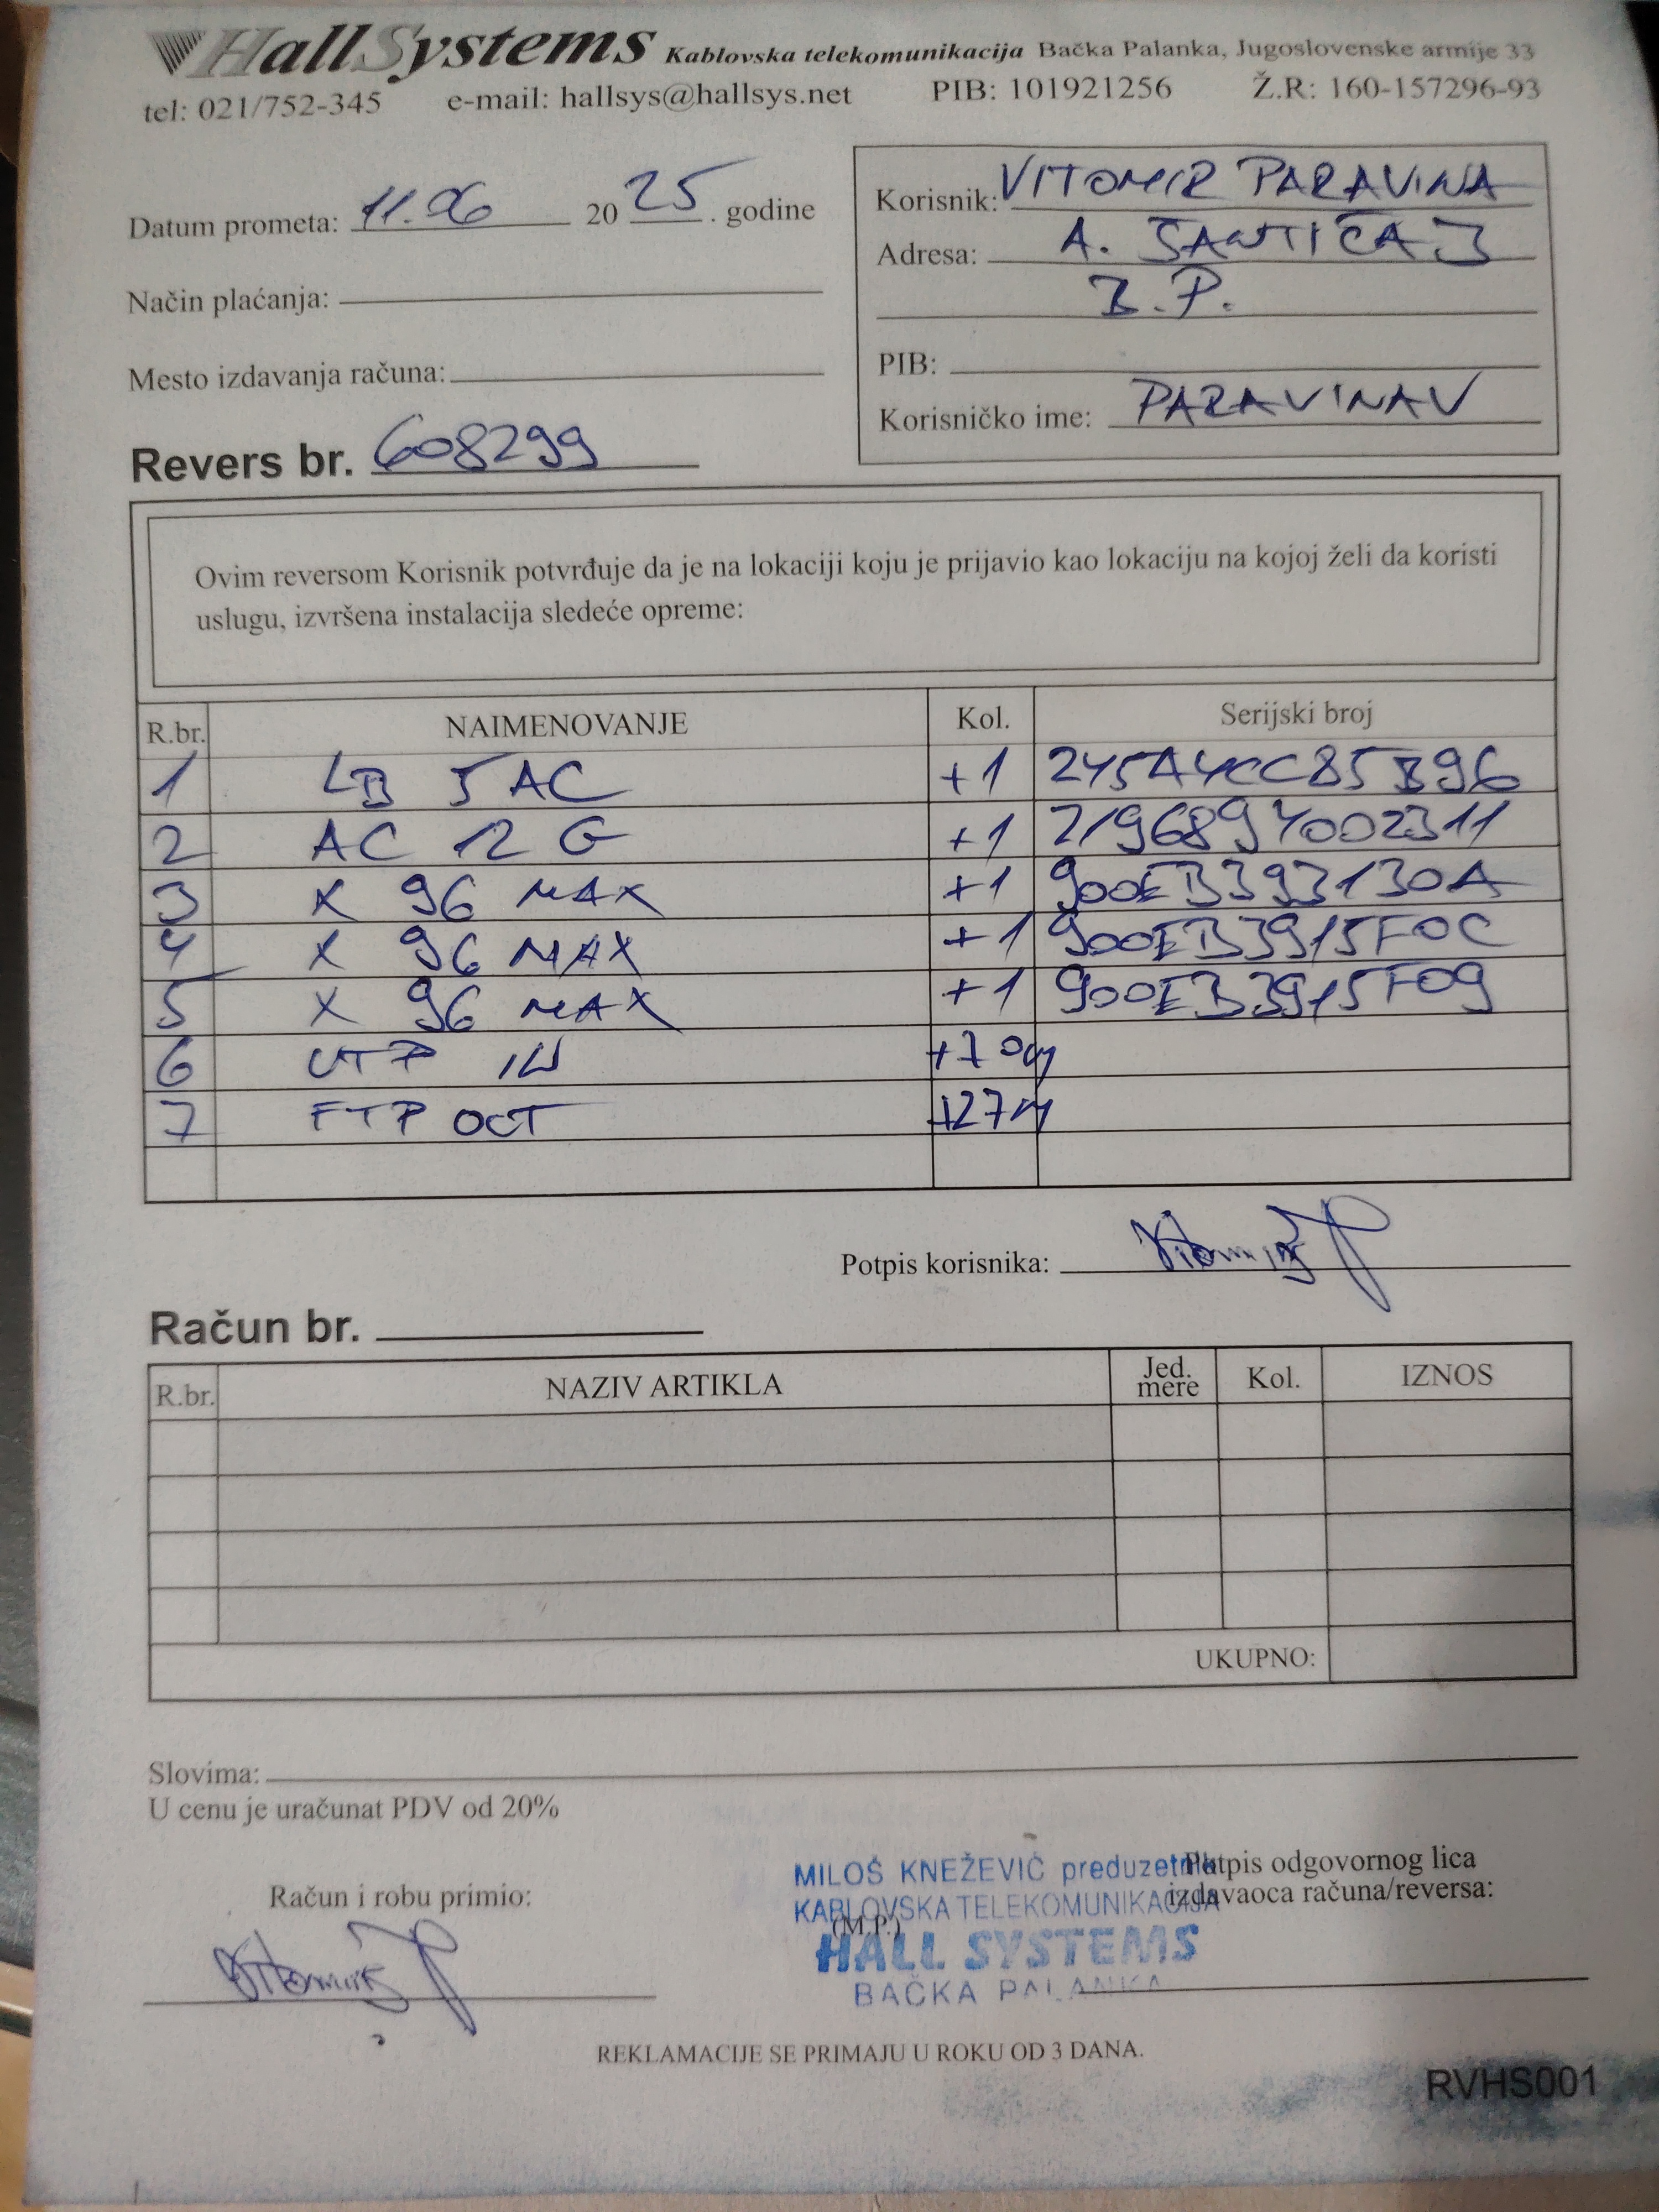 HallSystems Kablovska telekomunikacija Bačka Palanka, Jugoslovenske armije 33
tel: 021/752-345 e-mail: hallsys@hallsys.net PIB: 101921256 Ž.R: 160-157296-93
Datum prometa: 11.06 2025. godine
Način plaćanja:
Mesto izdavanja računa:
Revers br. 608299
Korisnik: VITOMIR PARAVINA
Adresa: A. ŠANTIĆA 3
B.P.
PIB:
Korisničko ime: PARAVINAV
Ovim reversom Korisnik potvrđuje da je na lokaciji koju je prijavio kao lokaciju na kojoj želi da koristi
uslugu, izvršena instalacija sledeće opreme:
R.br. NAIMENOVANJE Kol. Serijski broj
1 LB 5 AC +1 245A4CC85B96
2 AC 12 G +1 2196894002311
3 X 96 MAX +1 900EB393130A
4 X 96 MAX +1 900EB3915F0C
5 X 96 MAX +1 900EB3915F09
6 UTP IN
7 FTP OUT +27M
Potpis korisnika:
Račun br.
R.br. NAZIV ARTIKLA Jed. mere Kol. IZNOS
UKUPNO:
Slovima:
U cenu je uračunat PDV od 20%
Račun i robu primio:
MILOŠ KNEŽEVIĆ preduzetnik
KABLOVSKA TELEKOMUNIKACIJA
(M.P.)
HALL SYSTEMS
BAČKA PALANKA
Potpis odgovornog lica
izdavaoca računa/reversa:
REKLAMACIJE SE PRIMAJU U ROKU OD 3 DANA.
RVHS001